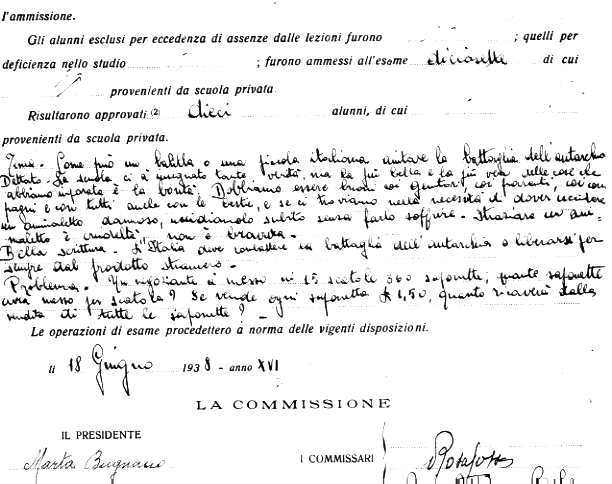 l'ammissione.
Gli alunni esclusi per eccedenza di assenze dalle lezioni furono ; quelli per
deficienza nello studio ; furono ammessi all'esame diciasette di cui
provenienti da scuola privata
Risultarono approvati (2) dieci alunni, di cui
provenienti da scuola privata.
Tema. Come può un balilla o una piccola italiana aiutare la battaglia dell'autarchia
Dettato. La scuola ci à insegnato tante verità, ma la più bella e la più vera delle cose che
abbiamo imparato è la bontà. Dobbiamo essere buoni coi genitori, coi parenti, coi com
pagni e con tutti anche con le bestie, e se ci troviamo nella necessità di dover uccidere
un animaletto dannoso, uccidiamolo subito senza farlo soffrire. Straziare un ani
maletto è crudeltà, non è bravura.
Bella scrittura. L'Italia deve vincere la battaglia dell'autarchia e liberarsi per
sempre dal prodotto straniero.
Problema. Un negoziante à messo in 15 scatole 360 saponette, quante saponette
avrà messo per scatola? Se vende ogni saponetta £ 1,50, quanto ricaverà dalla
vendita di tutte le saponette?
Le operazioni di esame procedettero a norma delle vigenti disposizioni.
li 18 Giugno 1938 - anno XVI
LA COMMISSIONE
IL PRESIDENTE
I COMMISSARI
Marta